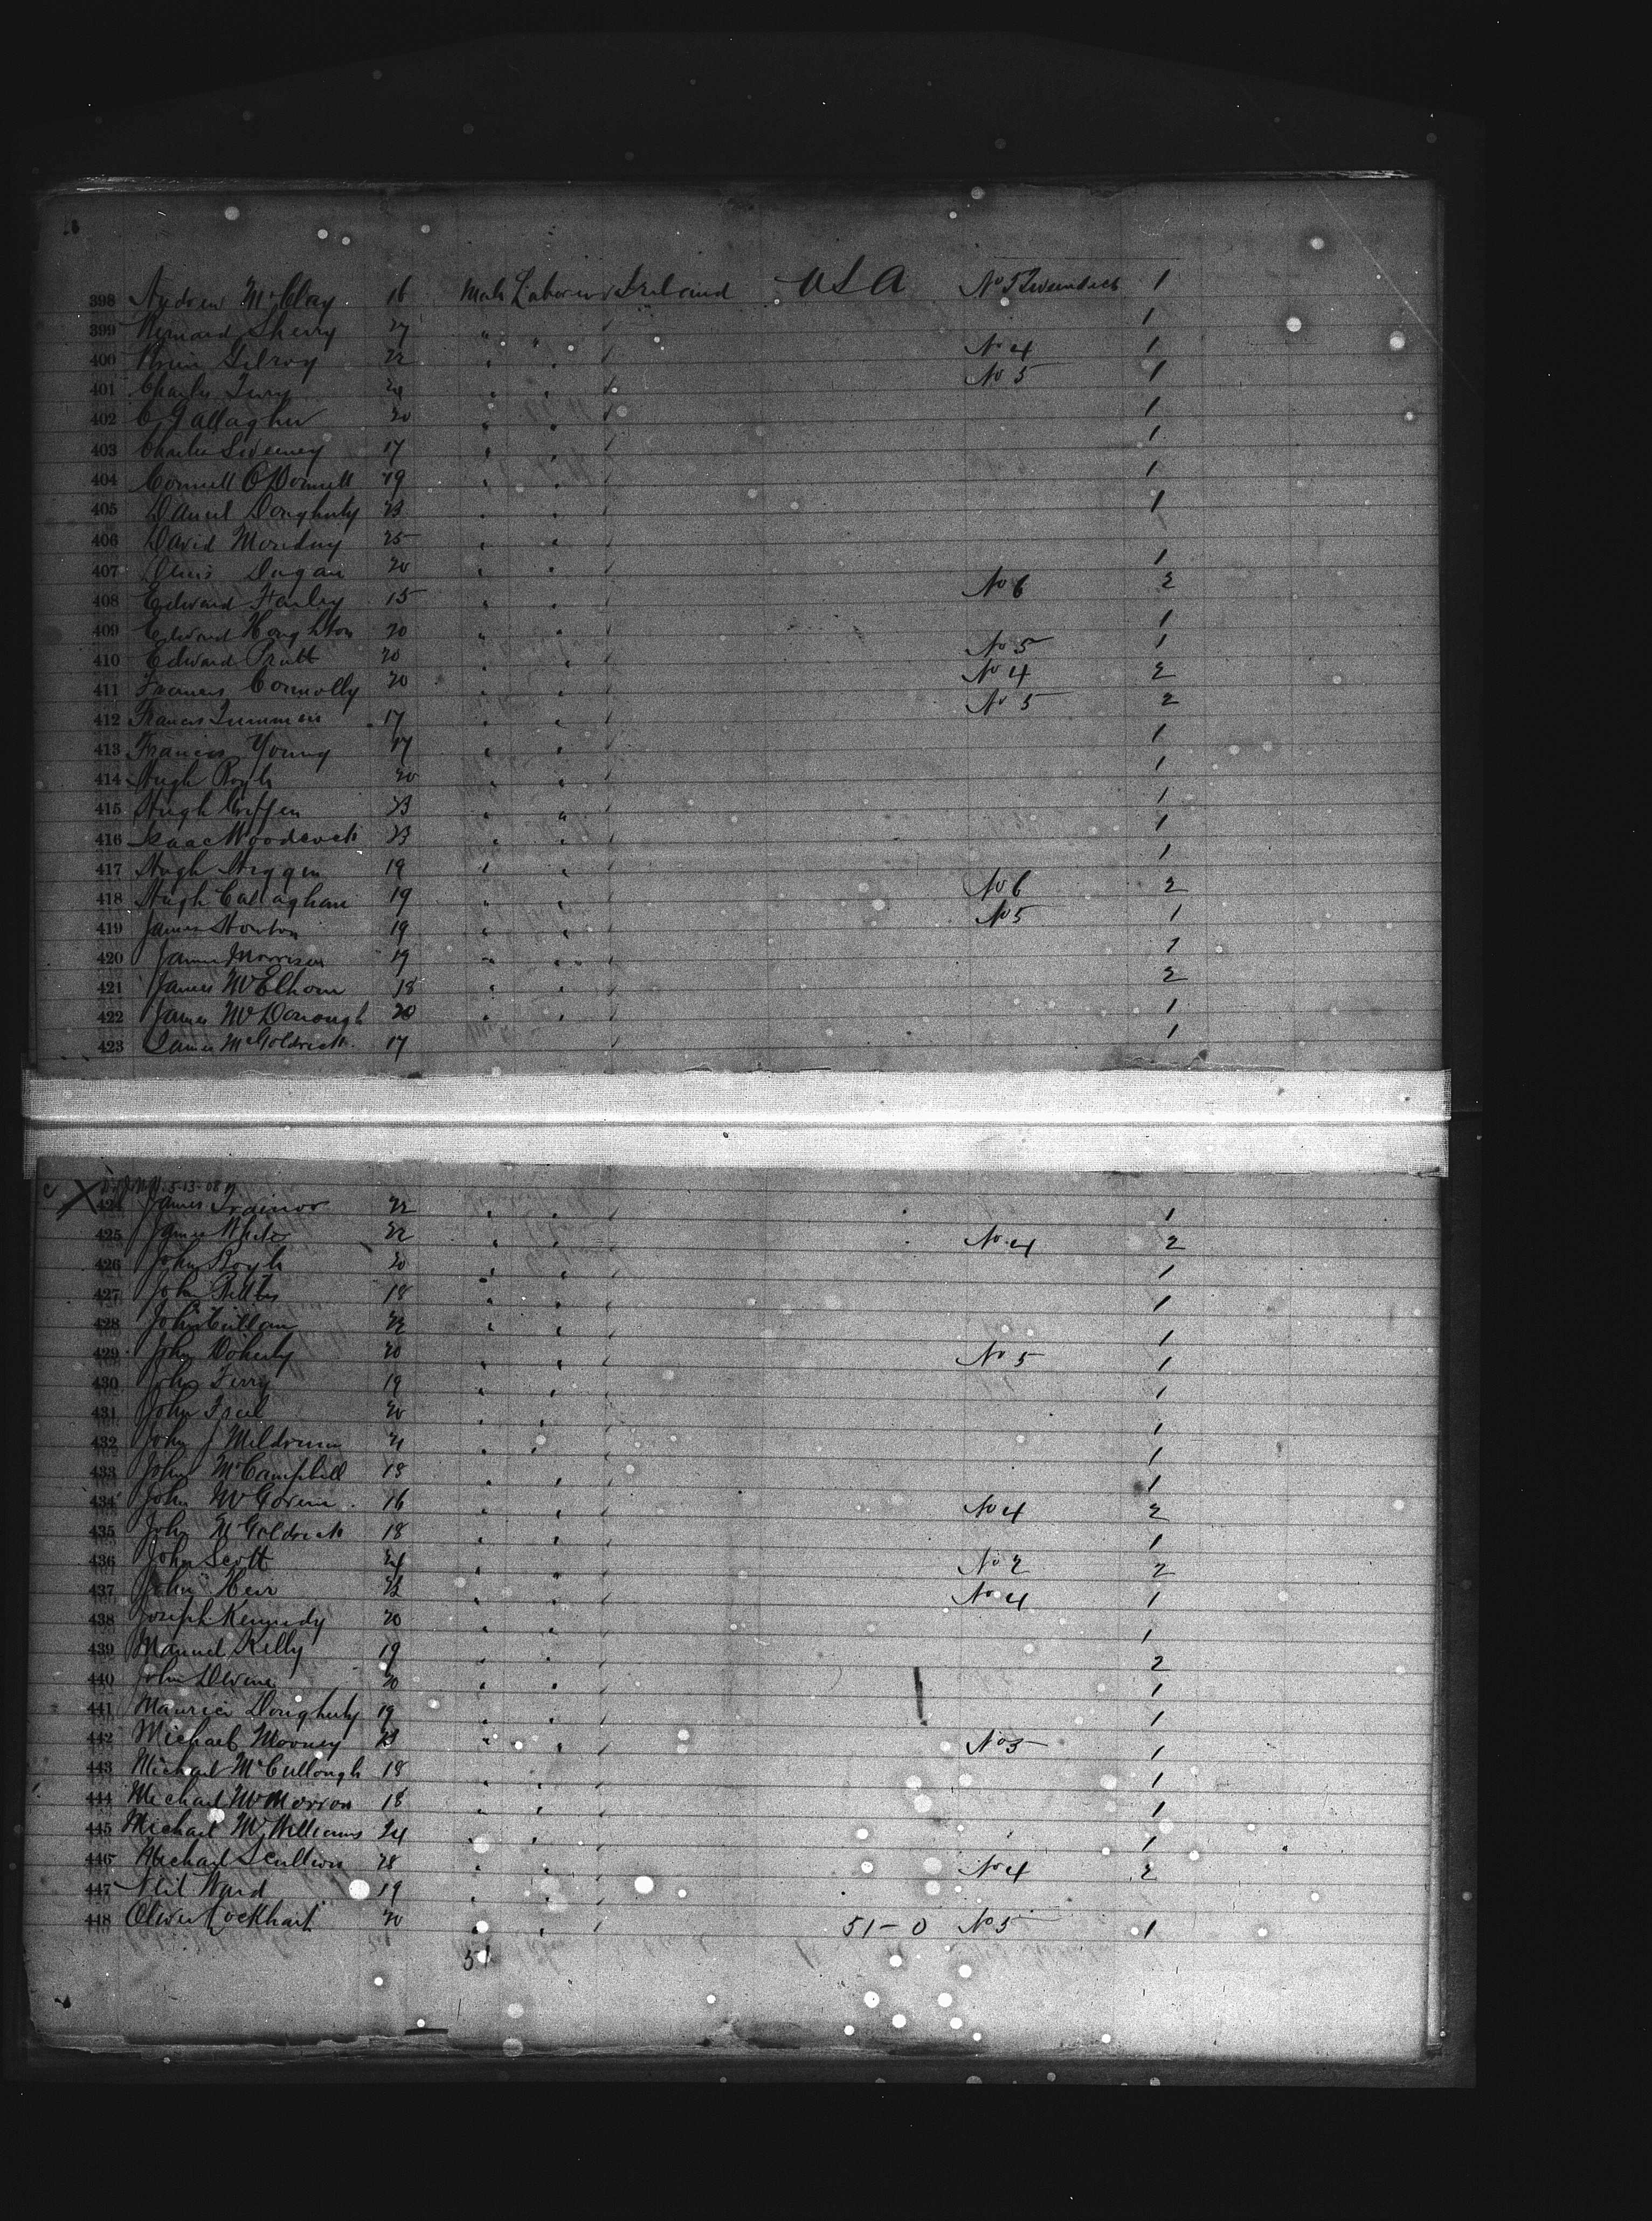 398 Andrew McClay 16 Male Laborer Ireland USA No 5 1
399 Bernard Sherry 27 " " 1
400 Gilroy 22 " " No 4 1
401 Charles 24 " " No 5 1
402 C Gallagher 20 " " 1
403 Charles Sweeney 17 " " 1
404 Connell O'Donnell 19 " " 1
405 Daniel Dougherty 23 " " 1
406 David 25 " "
407 Denis Dugan 20 " " 1
408 Edward Harley 15 " " No 6 2
409 Edward Houghton 20 " " 1
410 Edward Pratt 20 " " No 5 1
411 Francis Connolly 20 " " No 4 2
412 Francis 17 " " No 5 2
413 Francis Young 17 " " 1
414 Hugh Boyle 20 " " 1
415 Hugh Griffen 23 " " 1
416 Isaac Woodcock 23 " " 1
417 Hugh Higgen 19 " " 1
418 Hugh Callaghan 19 " " No 6 2
419 James Horton 19 " " No 5 1
420 James Morrison 19 " " 1
421 James McElhone 18 " " 2
422 James McDonough 20 " " 1
423 James McGoldrick 17 1
X 5-13-08
424 James Trainor 22 " " 1
425 James White 22 " " No 4 2
426 John Boyle 20 " " 1
427 John 18 " " 1
428 John Cullan 22 " " 1
429 John Doherty 20 " " No 5 1
430 John Ferry 19 " " 1
431 John Friel 20 " " 1
432 John J Meldrum 21 " " 1
433 John McCampbell 18 " " 1
434 John McGovern 16 " " No 4 2
435 John McGoldrick 18 " " 1
436 John Scott 24 " " No 2 2
437 John Weir 23 " " No 4 1
438 Joseph Kennedy 20 " " 1
439 Manuel Kelly 19 " " 2
440 John Devine 20 " " 1
441 Maurice Dougherty 19 " " 1
442 Michael Mooney 23 " " No 5 1
443 Michael McCullough 18 " " 1
444 Michael McMorrow 18 " " 1
445 Michael McWilliams 24 " " 1
446 Michael Scullion 28 " " No 4 2
447 Neil Ward 19 " "
448 Oliver Lockhart 20 " " 51-0 No 5 1
51